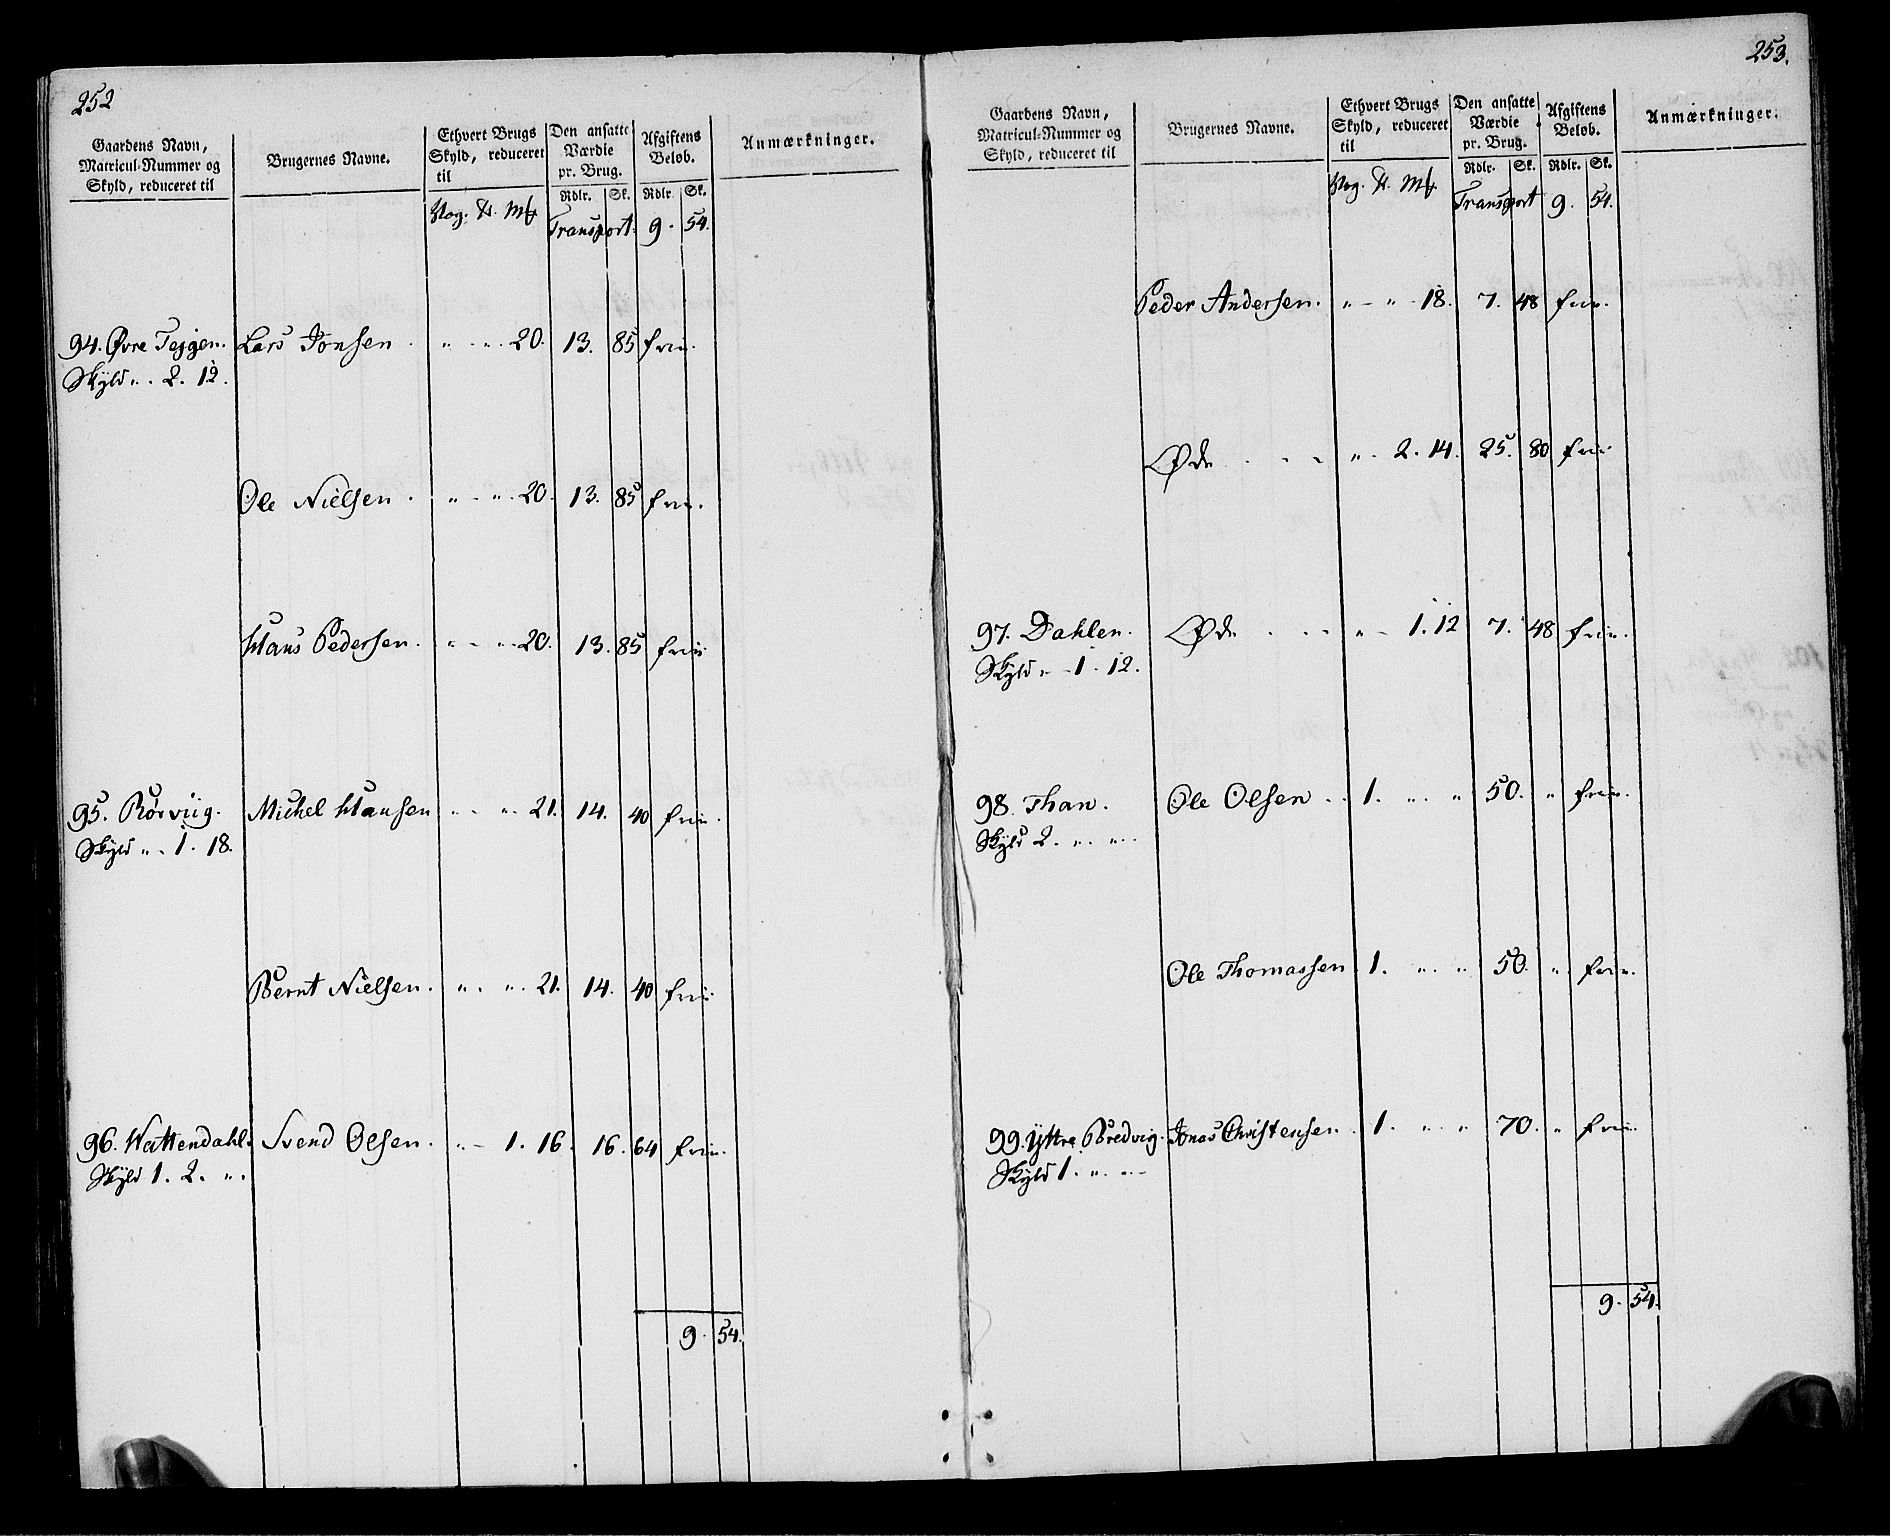 252
Gaardens Navn, Matricul-Nummer og Skyld, reduceret til | Brugernes Navne. | Ethvert Brugs Skyld, reduceret til | Den ansatte Værdie pr. Brug. | Afgiftens Beløb. | Anmærkninger.
Rdlr. Sk. Rdlr. Sk.
Vog. ℔. Mk Transport. 9. 54.
94. Øvre Tejgen. Lars Jonsen . „ - „ . 20. 13. 85 frii.
Skyld „ . 2. 12.
Ole Nielsen . „ - „ . 20. 13. 85 frii.
Hans Pedersen. „ - „ . 20. 13. 85 frii
95. Rørviig. Michel Hansen „ - „ . 21. 14. 40 frii.
Skyld „ . 1. 18.
Bernt Nielsen. „ . „ . 21. 14. 40 frii
96. Wattendahl. Svend Olsen. „ - 1. 16. 16. 64 frii.
Skyld 1. 2. „ .
9. 54.
253.
Gaardens Navn, Matricul-Nummer og Skyld, reduceret til | Brugernes Navne. | Ethvert Brugs Skyld, reduceret til | Den ansatte Værdie pr. Brug. | Afgiftens Beløb. | Anmærkninger.
Rdlr. Sk. Rdlr. Sk.
Vog. ℔. Mk. Transport 9. 54.
Peder Andersen. „ - „ - 18. 7. 48 frii.
Øde . - - „ . 2. 14. 25. 80 frii
97. Dahlen. Øde . - - „ - 1. 12 7. 48 frii.
Skyld „ - 1 - 12.
98. Than. Ole Olsen . . 1. „ . „ 50. „ frii.
Skyld 2. „ . „ .
Ole Thomassen 1. „ . „ 50. „ . frii.
99. Yttre Bredvig. Jonas Christensen. 1. „ „ 70. „ frii.
Skyld 1. „ . „
9. 54.